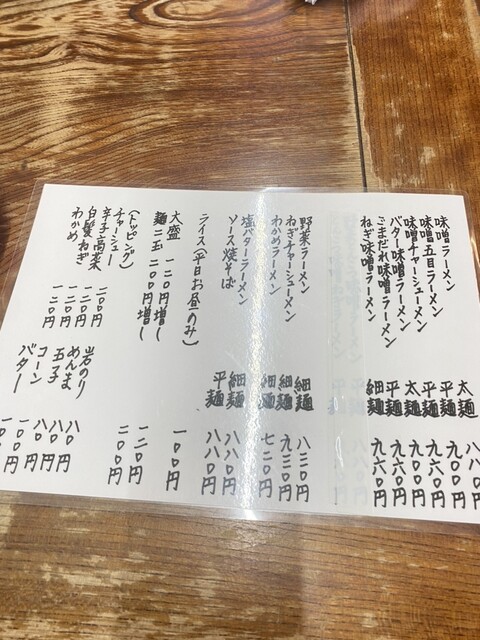 味噌ラーメン 太麺 八八
味噌五目ラーメン 平麺 九〇〇円
味噌チャーシューメン 平麺 九六〇円
バター味噌ラーメン 太麺 九〇〇円
ごまだれ味噌ラーメン 平麺 九六〇円
ねぎ味噌ラーメン 細麺 九六〇円
野菜ラーメン 細麺 八三〇円
ねぎチャーシューメン 細麺 九三〇円
わかめラーメン 細麺 七二〇円
塩バターラーメン 細麺 八八〇円
ソース焼そば 平麺 八八〇円
ライス(平日お昼のみ) 一〇〇円
大盛 一二〇円増し 一二〇円
麺二玉 二〇〇円増し 二〇〇円
(トッピング)
チャーシュー 二〇〇円
辛子高菜 一二〇円
白髪ねぎ 一二〇円
わかめ 一二〇円
岩のり 八〇円
めんま 八〇円
玉子 八〇円
コーン 一〇〇円
バター 一〇〇円